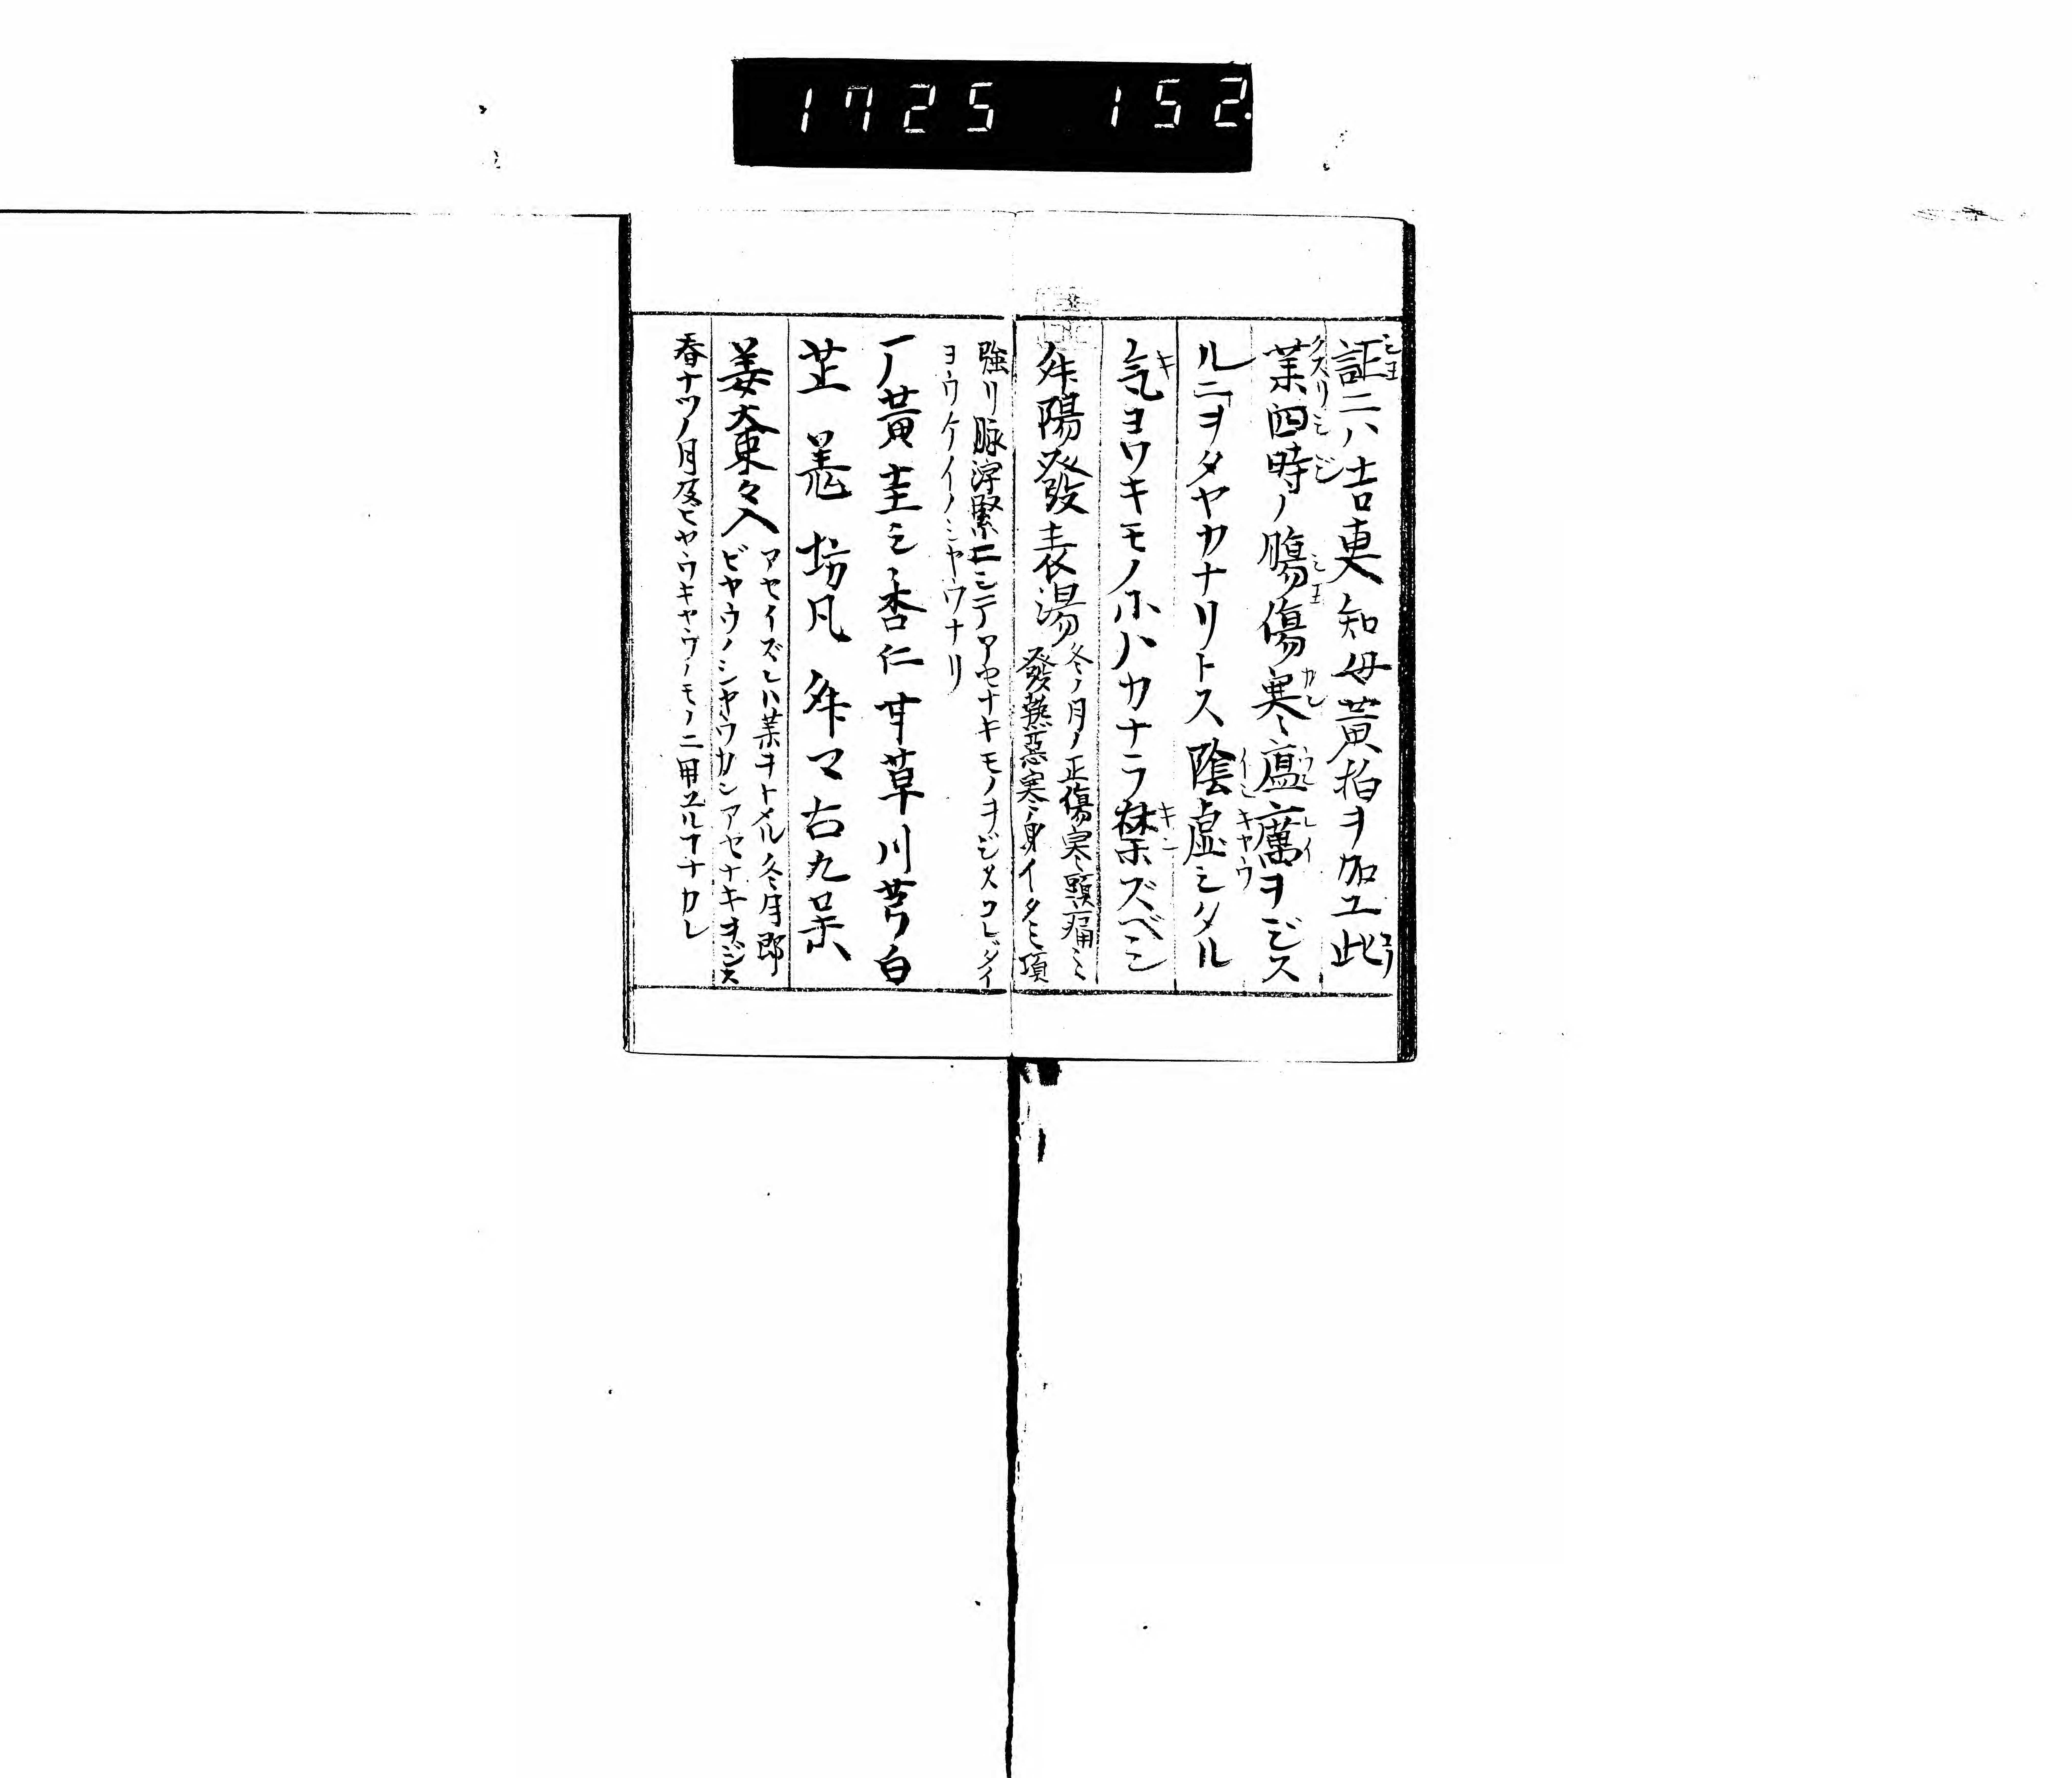 1725 152
証ニハ吉更知母黄柏ヲ加エ此
藥四時ノ傷傷寒瘟癘ヲジス
ルニヲタヤカナリトス陰虚シタル
氣ヨワキモノホハカナラ禁ズベシ
舛陽發表湯
冬ノ月ノ正傷寒頭痛シ
發熱惡寒身イタミ項
強リ脉浮緊ニシテアセナキモノヲジスコレダイ
ヨウケイノシヤウナリ
黄圭シ杏仁甘草川芎白
芷羗坊凡舛マ右九味
姜大棗々入
アセイズレハ藥ヲトメル冬月郎
ビヤウノシヤウカンアセナキヲジス
春ナツノ月及ヒヤウキヤウノモノニ用ユルヿナカレ